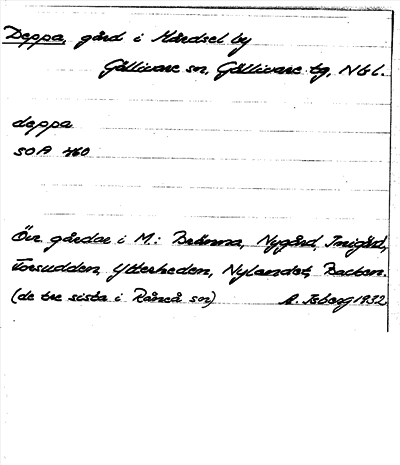 Deppa, gård i Mårdsel by
Gällivare sn, Gällivare tg, Nbl.
deppa
SOA 460
Övr gårdar i M.: Bränna, Nygård, Inigård,
Forsudden, Ytterheden, Nylandet, Backen.
(de tre sista i Råneå sn) A. Isberg 1932